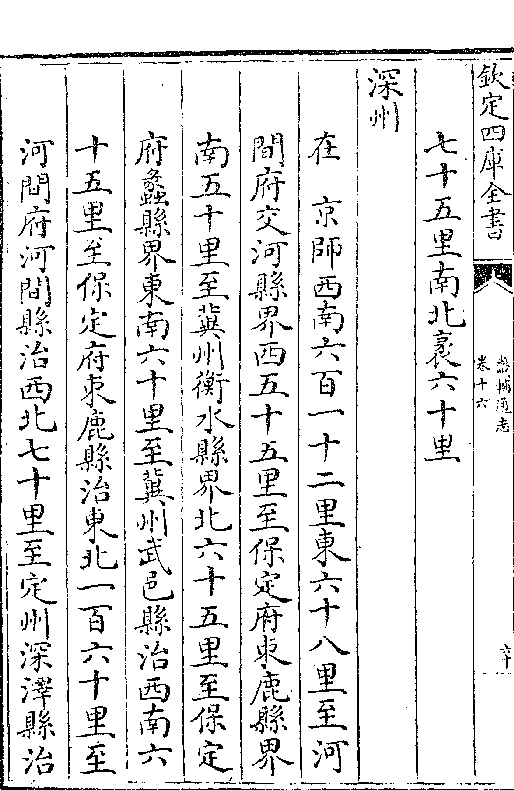 欽定四庫全書
畿輔通志
卷十六
六十
七十五里南北袤六十里
深州
在 京師西南六百一十二里東六十八里至河
間府交河縣界西五十五里至保定府束鹿縣界
南五十里至冀州衡水縣界北六十五里至保定
府蠡縣界東南六十里至冀州武邑縣治西南六
十五里至保定府束鹿縣治東北一百六十里至
河間府河間縣治西北七十里至定州深澤縣治